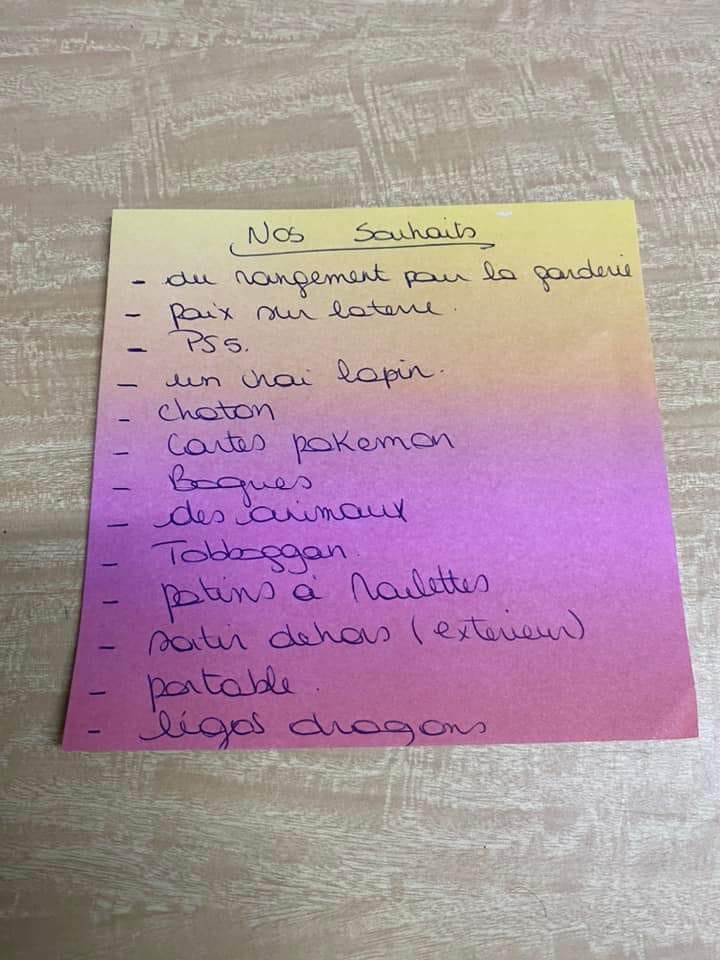 Nos Souhaits
- du rangement pour la garderie
- paix sur laterre.
- PS5.
- un chai lapin.
- chaton
- Cartes pokemon
- Bagues
- des animaux
- Tobboggan.
- patins à Roulettes
- sortir dehors (exterieur)
- portable.
- légos dragons